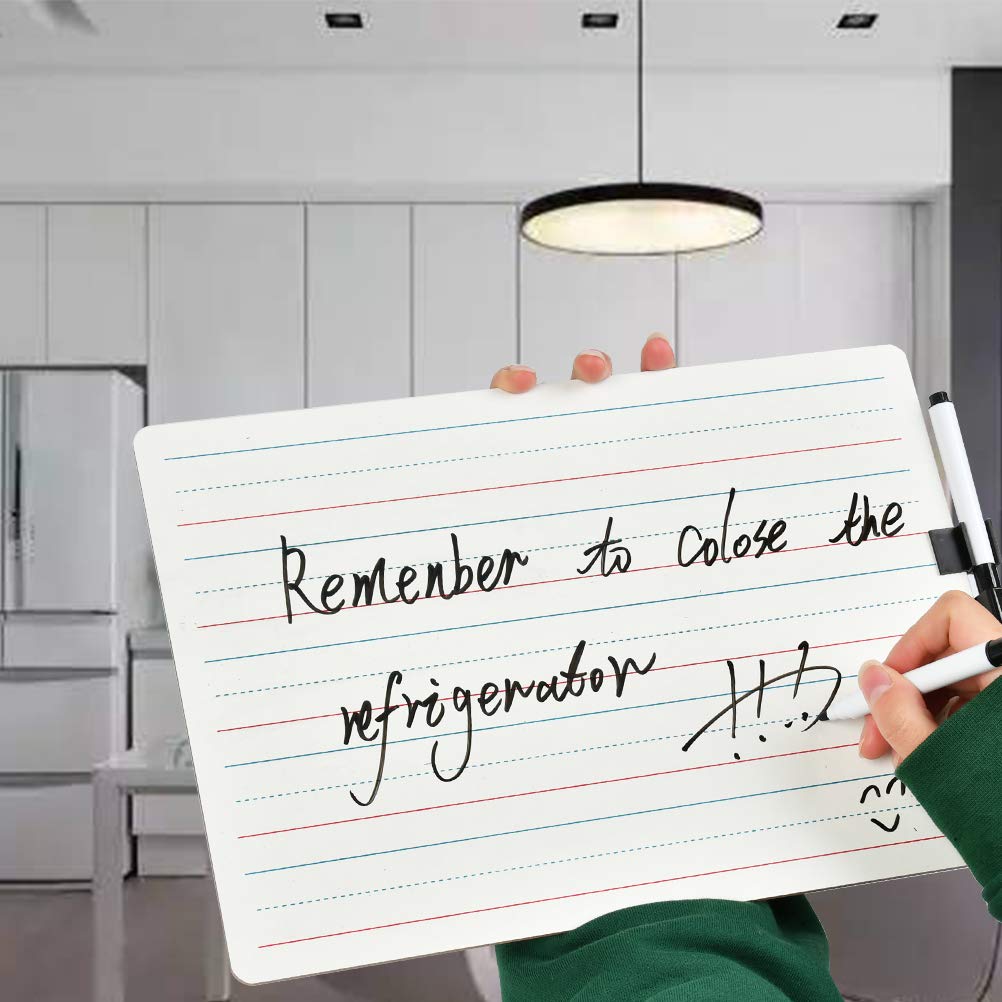 Remenber to colose the
refrigenator !!!